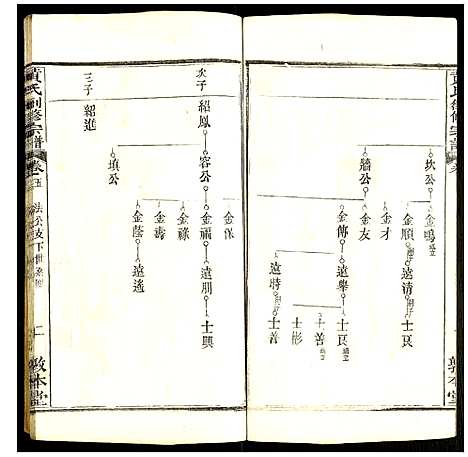 坎公
金鳴
金順
遠清
士民
金才
牆公
金友
金傳
遠舉
士民
士善
士彬
遠時
士善
次子
紹鳳
容公
金保
金福
遠朋
士興
金祿
金壽
金蔭
遠遙
填公
三子
紹進
黃氏創修宗譜
卷五
法公支下世系圖
二
敦本堂